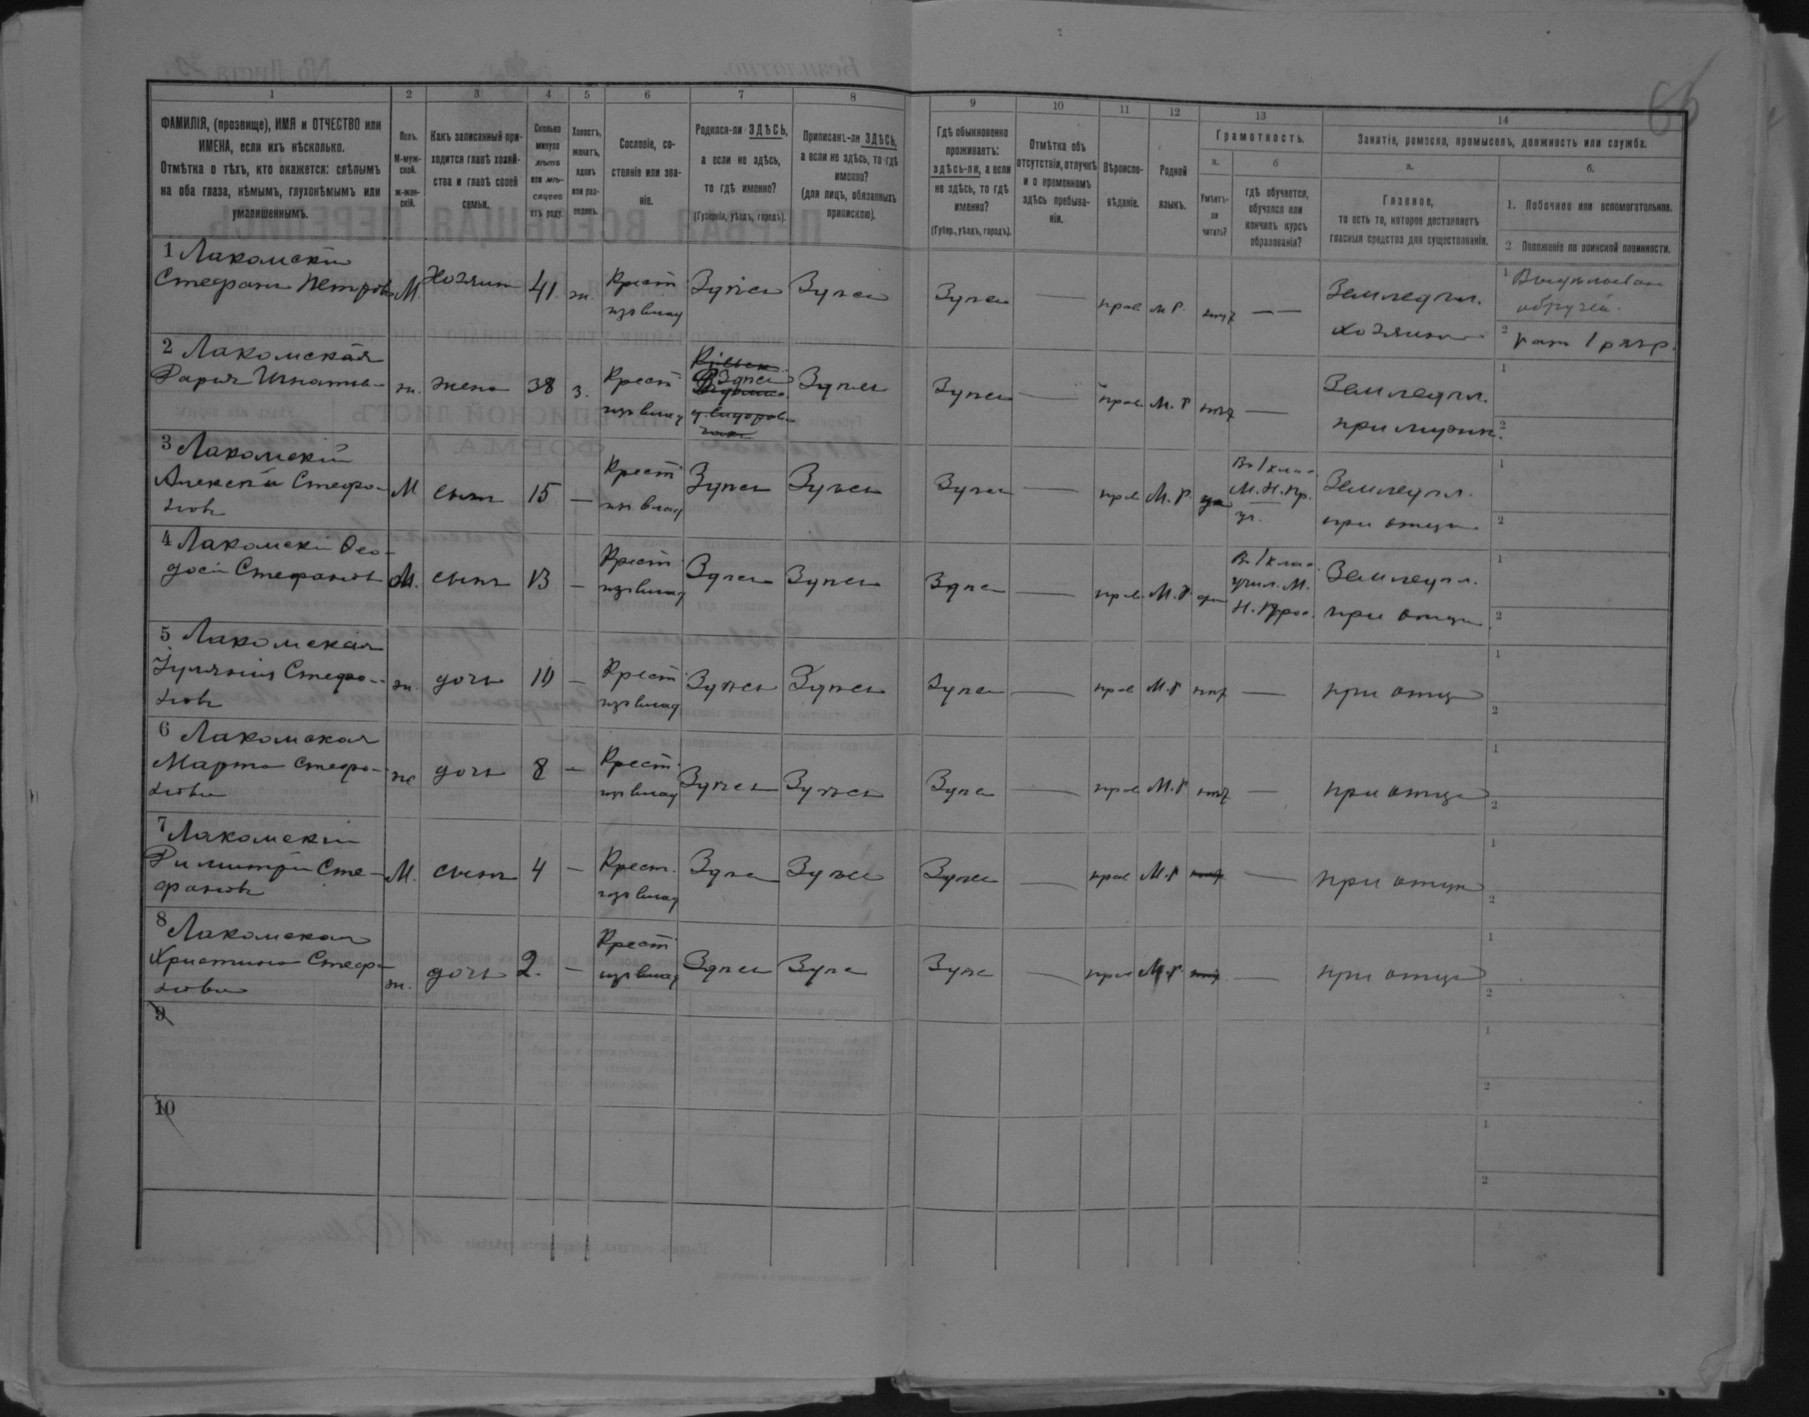 66
1 2 3 4 5 6 7 8 9 10 11 12 13 14
ФАМИЛІЯ, (прозвище), ИМЯ и ОТЧЕСТВО или
ИМЕНА, если ихъ нѣсколько.
Отмѣтка о тѣхъ, кто окажется: слѣпымъ
на оба глаза, нѣмымъ, глухонѣмымъ или
умалишеннымъ.
Полъ.
М-муж-
ской.
ж-жен-
скій.
Какъ записанный при-
ходится главѣ хозяй-
ства и главѣ своей
семьи.
Сколько
минуло
лѣтъ
или мѣ-
сяцевъ
отъ роду.
Холостъ,
женатъ,
вдовъ
или раз-
веденъ.
Сословіе, со-
стояніе или зва-
ніе.
Родился-ли ЗДѢСЬ,
а если не здѣсь,
то гдѣ именно?
(Губернія, уѣздъ, городъ).
Приписанъ-ли ЗДѢСЬ,
а если не здѣсь, то гдѣ
именно?
(для лицъ, обязанныхъ
припискою).
Гдѣ обыкновенно
проживаетъ:
здѣсь-ли, а если
не здѣсь, то гдѣ
именно?
(Губер., уѣздъ, городъ).
Отмѣтка объ
отсутствіи, отлучкѣ
и о временномъ
здѣсь пребыва-
ніи.
Вѣроиспо-
вѣданіе.
Родной
языкъ.
Грамотность.
а. б
Умѣетъ-
ли
читать?
гдѣ обучается,
обучался или
кончилъ курсъ
образованія?
Занятіе, ремесло, промыселъ, должность или служба.
а. б.
Главное,
то есть то, которое доставляетъ
главныя средства для существованія.
1. Побочное или вспомогательное.
2 Положеніе по воинской повинности.
1 Лакомскій
Стефанъ Петровъ М хозяинъ 41. ж. Крест Здѣсь Здѣсь Здѣсь — прав М Р. нѣт — Земледѣл.
из влад хозяинъ
1
обручей.
2 рат 1 разр.
2 Лакомская
Дарья Игнатье- ж. жена 38 з. Крест
из влад Здѣсь Здѣсь Здѣсь — прав М. Р нѣт — Земледѣл.
при мужѣ.
1
2
3 Лакомскій
Алексѣй Стефа- М сынъ 15 — Крест
новъ из влад Здѣсь Здѣсь Здѣсь — прав М. Р. да
В 1 клас
М. Н. Пр.
уч.
Земледѣл.
при отцѣ
1
2
4 Лакомскій Фео-
досій Стефановъ М. сынъ 13 — Крест
из влад Здѣсь Здѣсь Здѣсь — прав М. Р да
В 1 клас
учил. М.
Н. Прос.
Земледѣл.
при отцѣ
1
2
5 Лакомская
Іулянія Стефа-
нов ж. дочь 10 — Крест
из влад Здѣсь Здѣсь Здѣсь — прав М. Р нѣт — при отцѣ
1
2
6 Лакомская
Марта Стефа-
нова ж дочь 8 — Крест
из влад Здѣсь Здѣсь Здѣсь — прав М. Р нѣт — при отцѣ
1
2
7 Лакомскій
Димитрій Сте-
фановъ М. сынъ 4 — Крест.
из влад Здѣсь Здѣсь Здѣсь — прав М. Р нѣт — при отцѣ
1
2
8 Лакомская
Христина Стефа-
нова ж. дочь 2. — Крест
из влад Здѣсь Здѣсь Здѣсь — прав М. Р. нѣт — при отцѣ
1
2
9
1
2
10
1
2